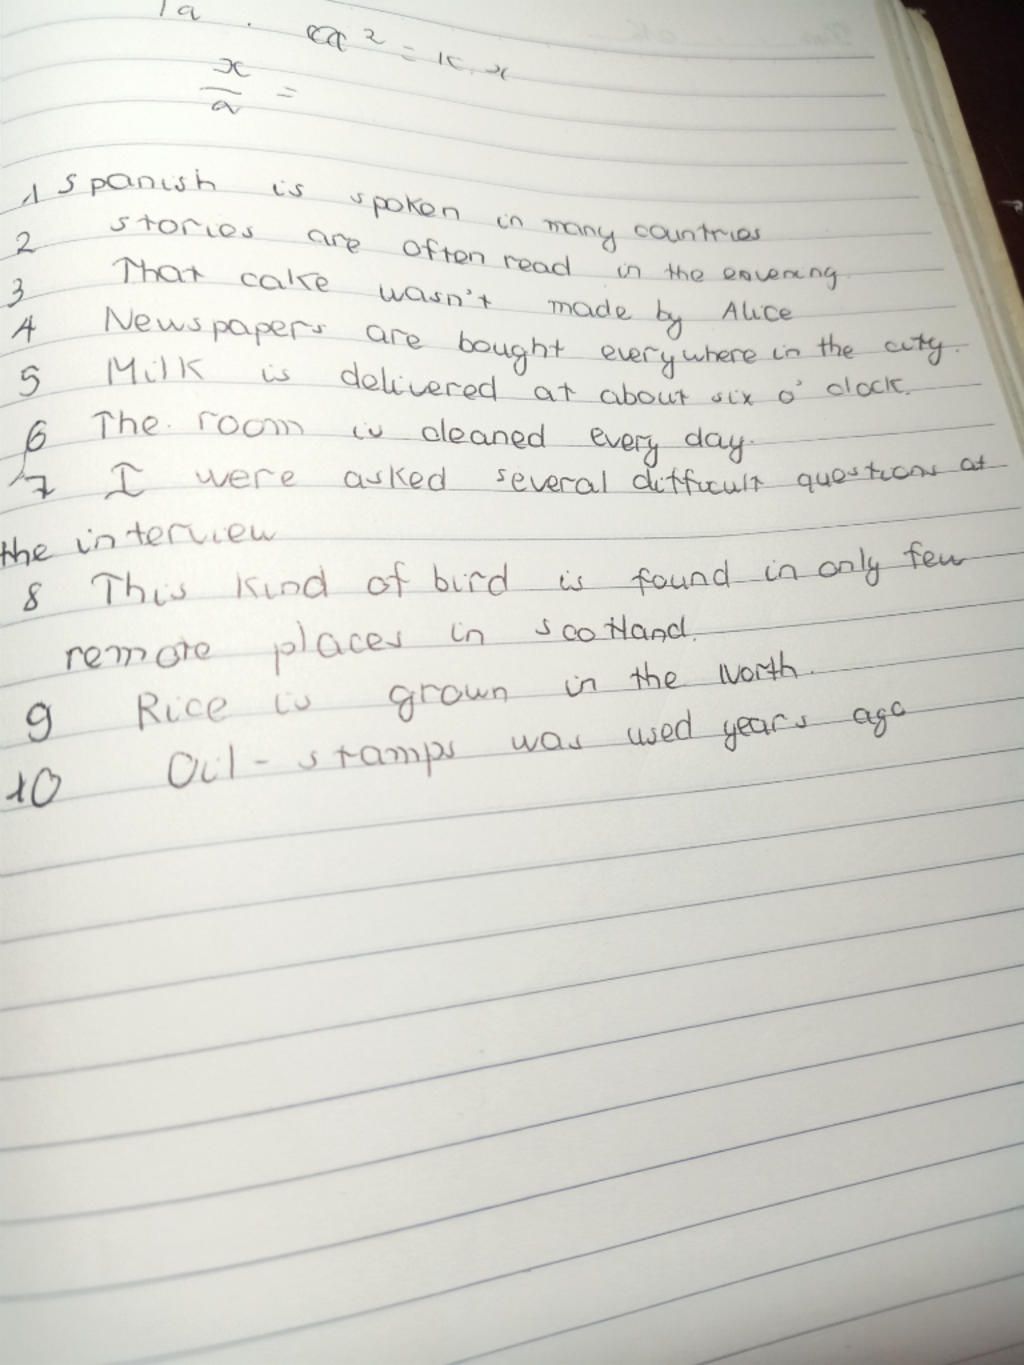 1a . a² = k. x
x/a =
1 Spanish is spoken in many countries
2 stories are often read in the eavening
3 That cake wasn't made by Alice
4 Newspapers are bought everywhere in the city.
5 Milk is delivered at about six o' clock.
6 The room is cleaned every day.
7 I were asked several difficult questions at
the interview
8 This kind of bird is found in only few
remote places in scotland.
9 Rice is grown in the North.
10 Oil - stamps was used years ago